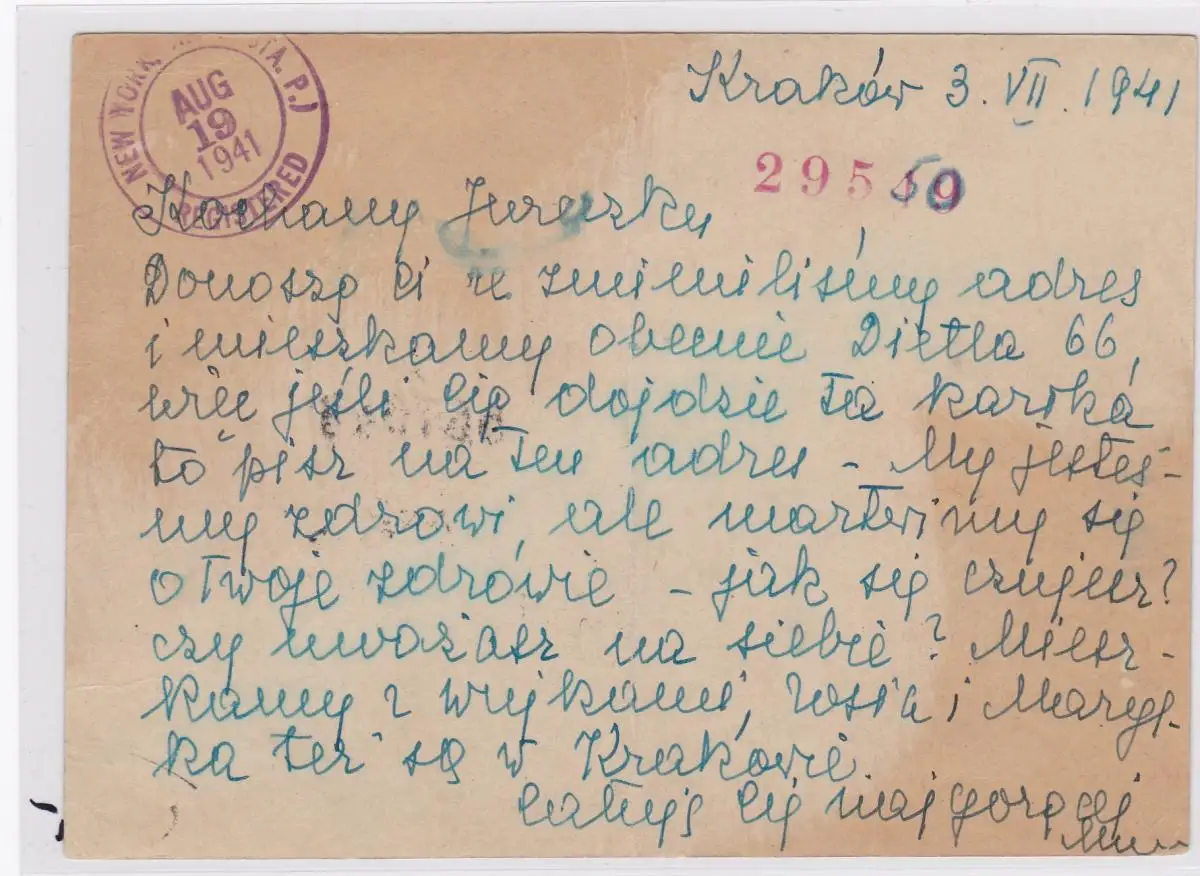 NEW YORK, STA. P.)
AUG
19
1941
REGISTERED
Kraków 3. VII. 1941
Kochany Jureczku
Donoszę Ci że zmieniliśmy adres
i mieszkamy obecnie Dietla 66,
więc jeśli Cię dojdzie ta kartka
to pisz na ten adres - My jesteś-
my zdrowi, ale martwimy się
o Twoje zdrowie - jak się czujesz?
czy uważasz na siebie? Miesz-
kamy z wujkami, Zosia i Marys-
ka też są w Krakowie
Całuję Cię najgoręcej